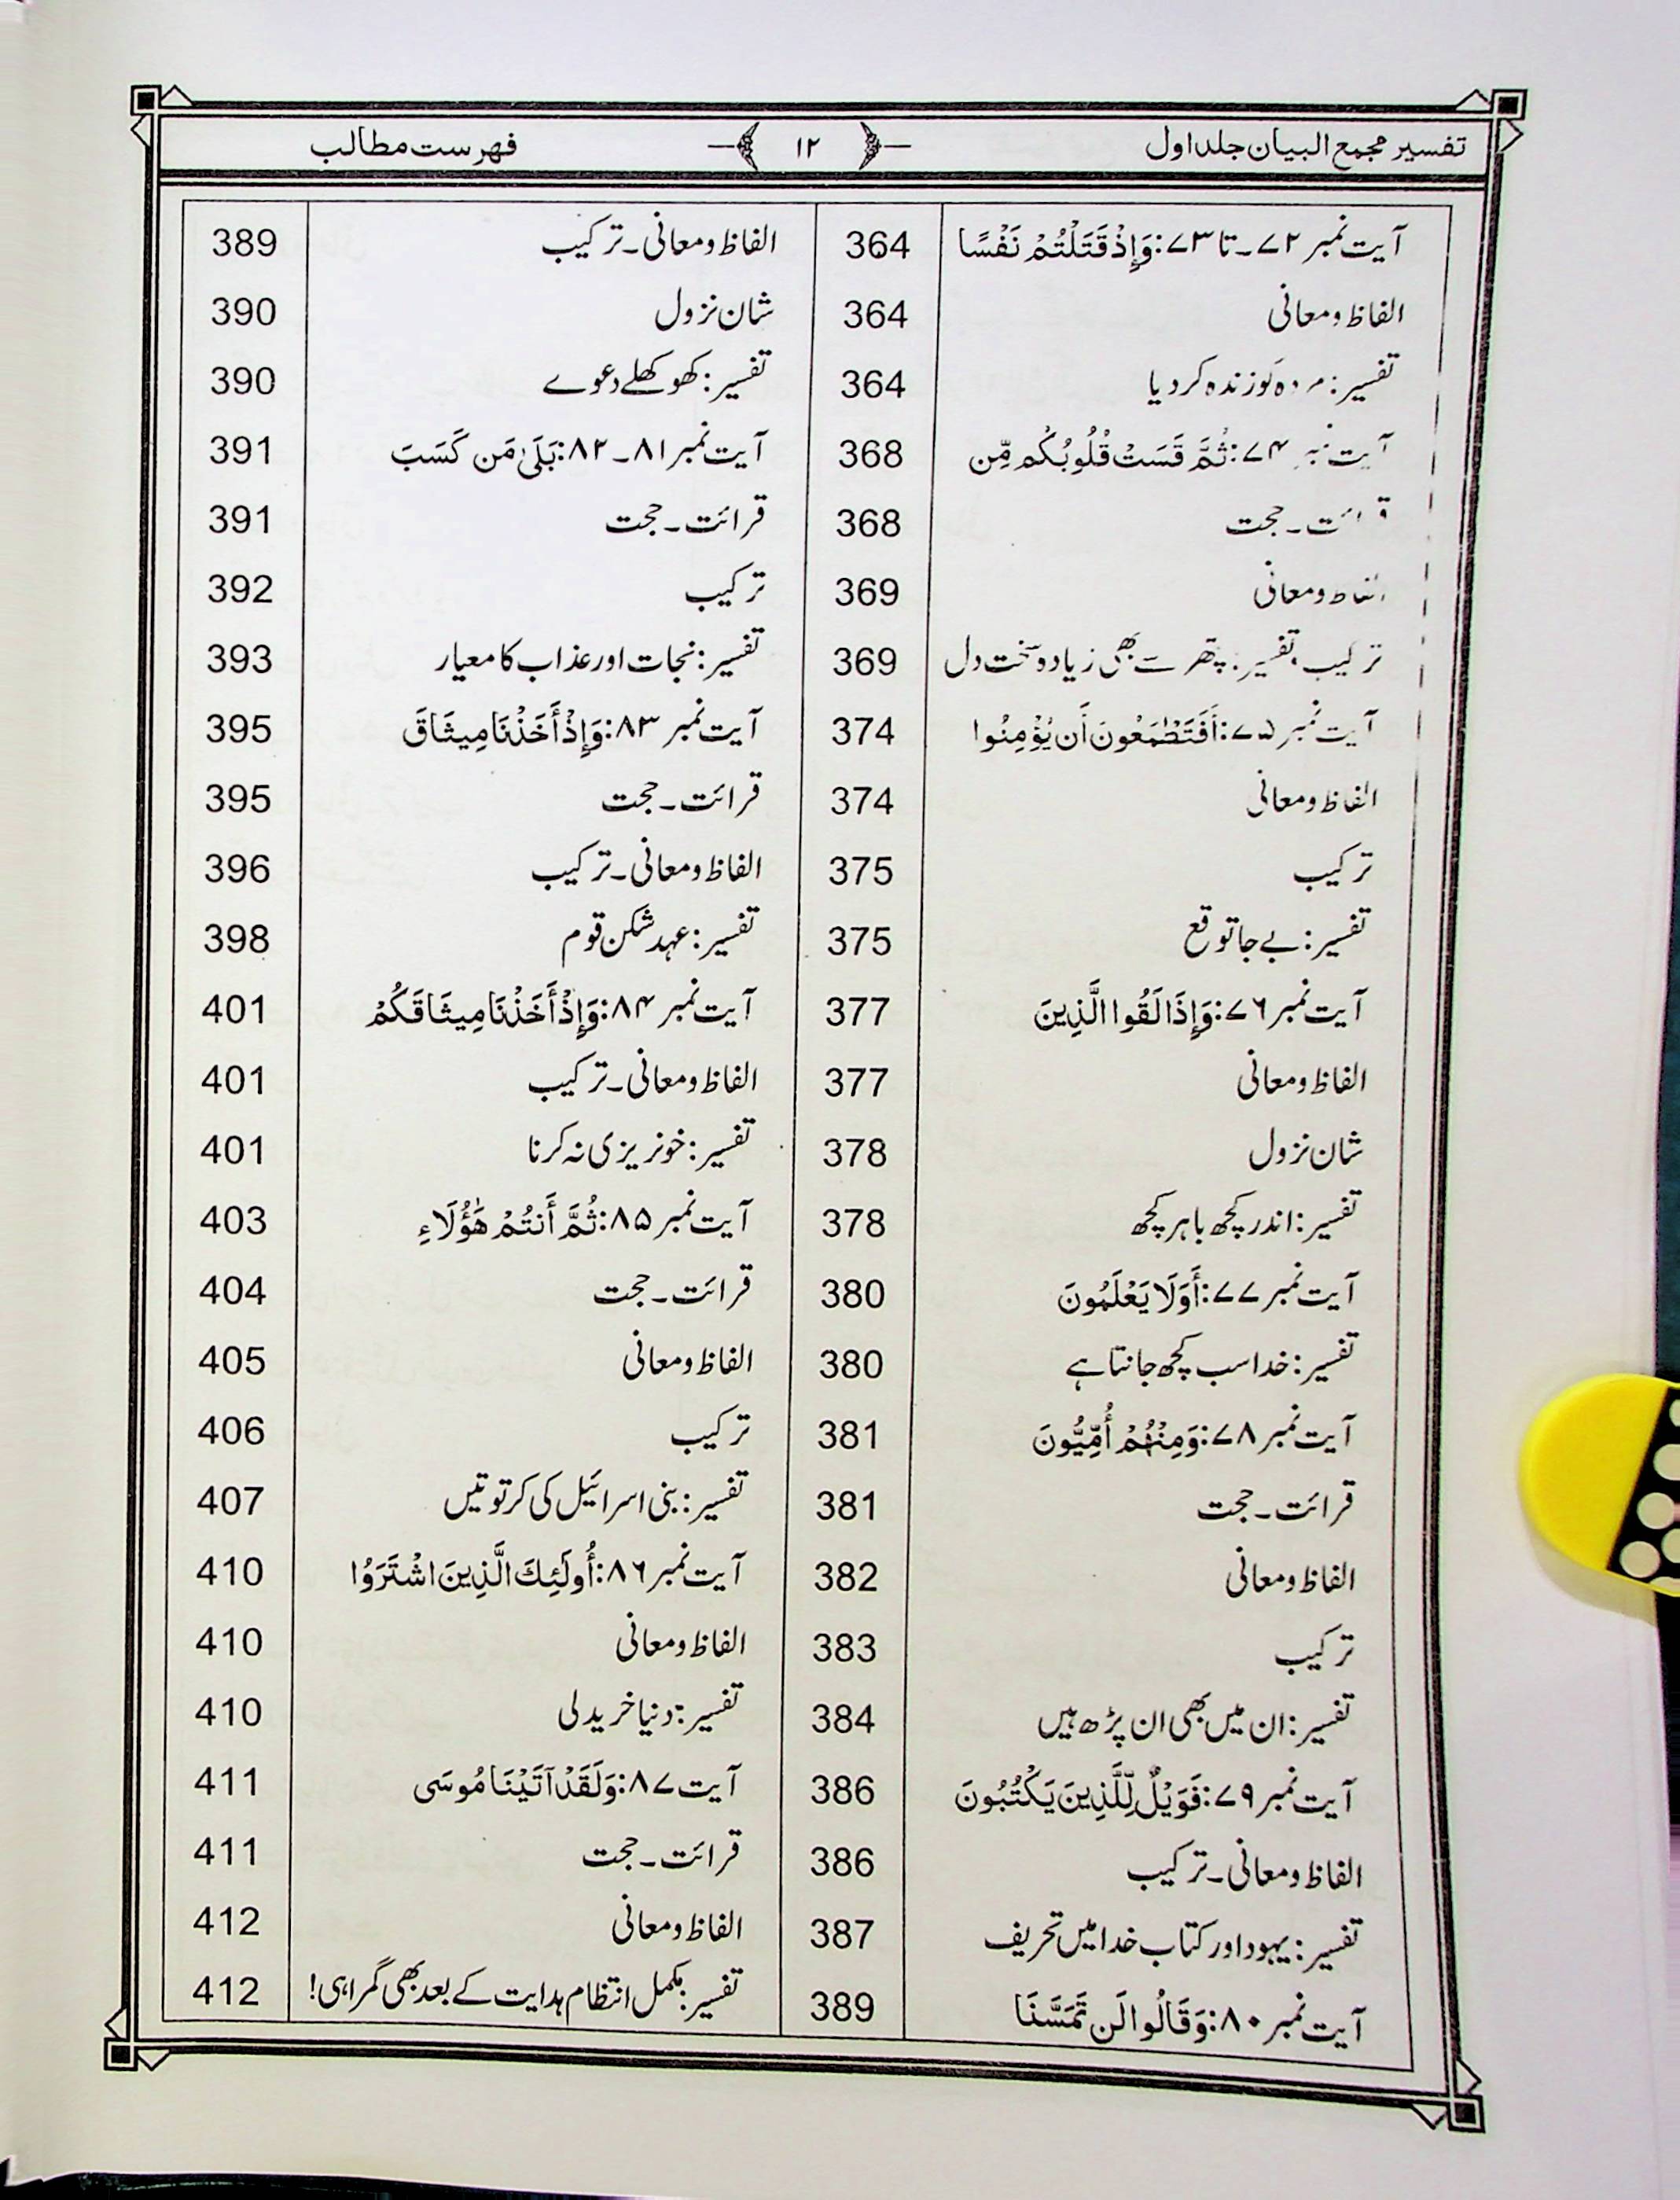 تفسیر مجمع البیان جلد اول ۱۲ فہرست مطالب
آیت نمبر ۷۲۔تا ۷۳: وَإِذْ قَتَلْتُمْ نَفْسًا 364
الفاظ ومعانی 364
تفسیر: مردہ کو زندہ کر دیا 364
آیت نمبر ۷۴: ثُمَّ قَسَتْ قُلُوبُكُم مِّن 368
قرائت۔حجت 368
الفاظ ومعانی 369
ترکیب،تفسیر: پتھر سے بھی زیادہ سخت دل 369
آیت نمبر ۷۵: أَفَتَطْمَعُونَ أَن يُؤْمِنُوا 374
الفاظ ومعانی 374
ترکیب 375
تفسیر: بے جا توقع 375
آیت نمبر ۷۶: وَإِذَا لَقُوا الَّذِينَ 377
الفاظ ومعانی 377
شان نزول 378
تفسیر: اندر کچھ باہر کچھ 378
آیت نمبر ۷۷: أَوَلَا يَعْلَمُونَ 380
تفسیر: خدا سب کچھ جانتا ہے 380
آیت نمبر ۷۸: وَمِنْهُمْ أُمِّيُّونَ 381
قرائت۔حجت 381
الفاظ ومعانی 382
ترکیب 383
تفسیر: ان میں بھی ان پڑھ ہیں 384
آیت نمبر ۷۹: فَوَيْلٌ لِّلَّذِينَ يَكْتُبُونَ 386
الفاظ ومعانی۔ترکیب 386
تفسیر: یہود اور کتاب خدا میں تحریف 387
آیت نمبر ۸۰: وَقَالُوا لَن تَمَسَّنَا 389
الفاظ ومعانی۔ترکیب 389
شان نزول 390
تفسیر: کھوکھلے دعوے 390
آیت نمبر ۸۱۔۸۲: بَلَىٰ مَن كَسَبَ 391
قرائت۔حجت 391
ترکیب 392
تفسیر: نجات اور عذاب کا معیار 393
آیت نمبر ۸۳: وَإِذْ أَخَذْنَا مِيثَاقَ 395
قرائت۔حجت 395
الفاظ ومعانی۔ترکیب 396
تفسیر: عہد شکن قوم 398
آیت نمبر ۸۴: وَإِذْ أَخَذْنَا مِيثَاقَكُمْ 401
الفاظ ومعانی۔ترکیب 401
تفسیر: خونریزی نہ کرنا 401
آیت نمبر ۸۵: ثُمَّ أَنتُمْ هَٰؤُلَاءِ 403
قرائت۔حجت 404
الفاظ ومعانی 405
ترکیب 406
تفسیر: بنی اسرائیل کی کرتوتیں 407
آیت نمبر ۸۶: أُولَٰئِكَ الَّذِينَ اشْتَرَوُا 410
الفاظ ومعانی 410
تفسیر: دنیا خرید لی 410
آیت ۸۷: وَلَقَدْ آتَيْنَا مُوسَى 411
قرائت۔حجت 411
الفاظ ومعانی 412
تفسیر: مکمل انتظام ہدایت کے بعد بھی گمراہی! 412